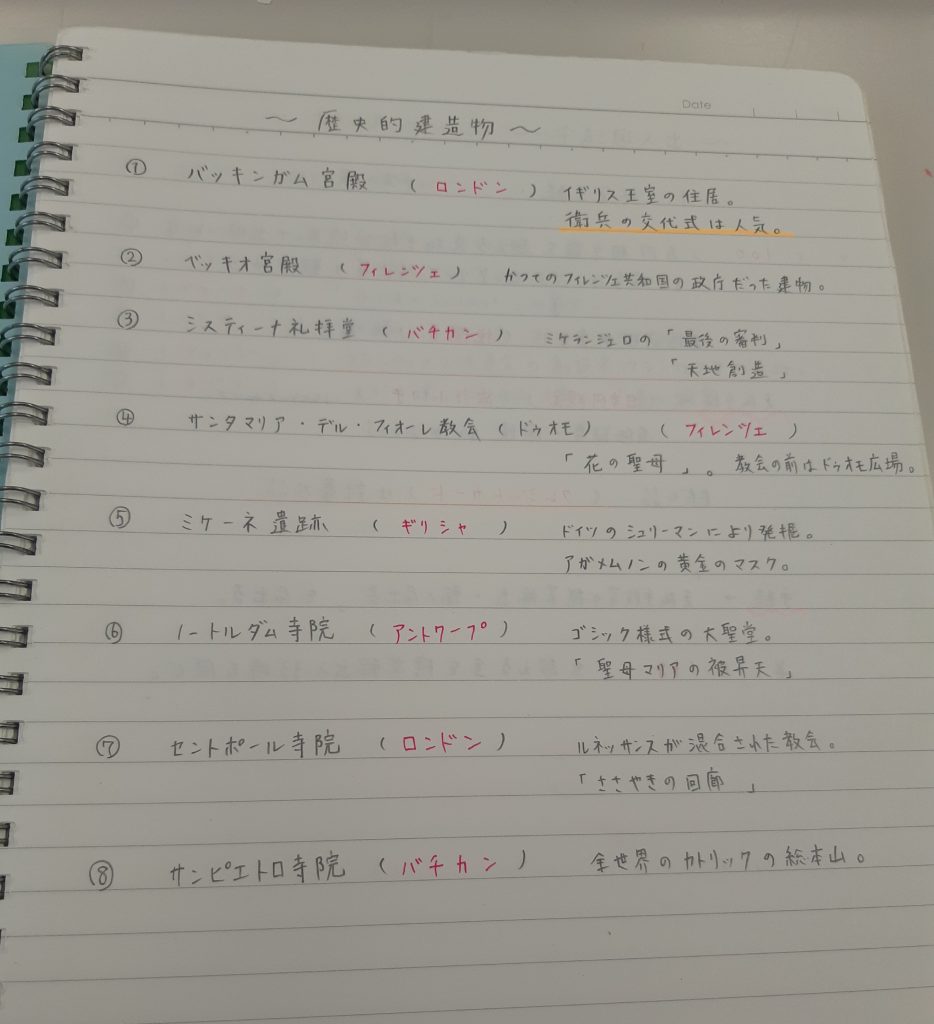 Date
～ 歴史的建造物 ～
① バッキンガム宮殿 ( ロンドン ) イギリス王室の住居。
衛兵の交代式は人気。
② ベッキオ宮殿 ( フィレンツェ ) かつてのフィレンツェ共和国の政庁だった建物。
③ システィーナ礼拝堂 ( バチカン ) ミケランジェロの「最後の審判」
「天地創造」
④ サンタマリア・デル・フィオーレ教会 (ドゥオモ) ( フィレンツェ )
「花の聖母」。教会の前はドゥオモ広場。
⑤ ミケーネ遺跡 ( ギリシャ ) ドイツのシュリーマンにより発掘。
アガメムノンの黄金のマスク。
⑥ ノートルダム寺院 ( アントワープ ) ゴシック様式の大聖堂。
「聖母マリアの被昇天」
⑦ セントポール寺院 ( ロンドン ) ルネッサンスが混合された教会。
「ささやきの回廊」
⑧ サンピエトロ寺院 ( バチカン ) 全世界のカトリックの総本山。